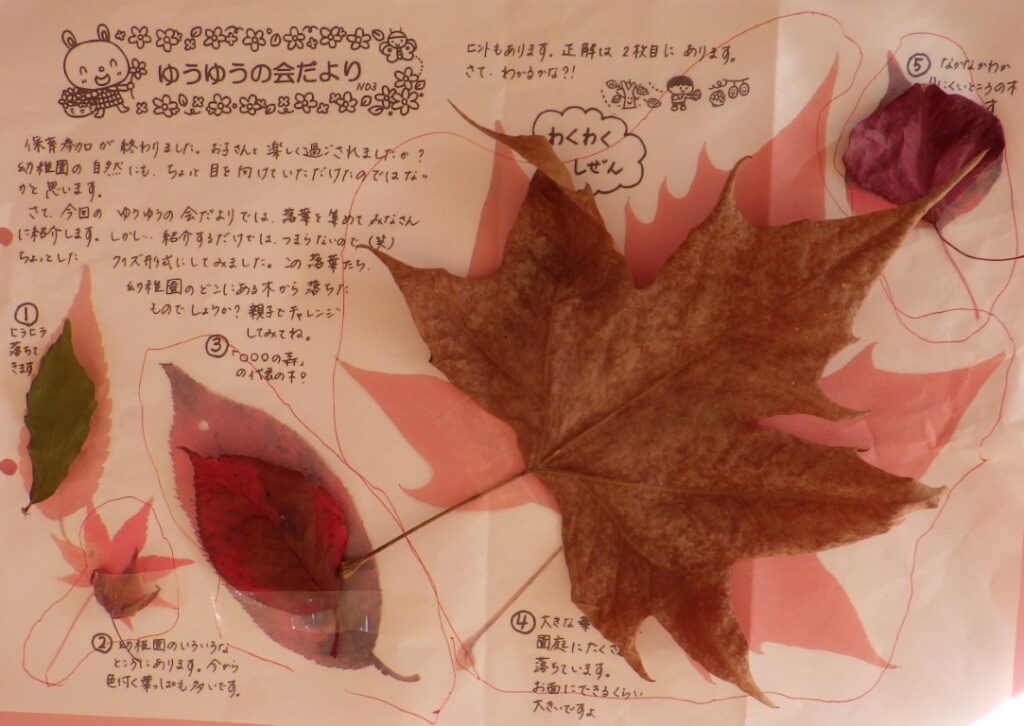 ゆうゆうの会だより
NO3
保育参加が終わりました。お子さんと楽しく過ごされましたか?
幼稚園の自然にも、ちょっと目を向けていただけたのではない
かと思います。
さて、今回の ゆうゆうの会だよりでは、落葉を集めてみなさん
に紹介します。しかし… 紹介するだけでは、つまらないので(笑)
ちょっとした クイズ形式にしてみました。この落葉たち、
幼稚園のどこにある木から落ちた
ものでしょうか? 親子でチャレンジ
してみてね。
ヒントもあります。正解は2枚目にあります。
さて、わかるかな?!
わくわく
しぜん
①
ヒラヒラ
落ちて
きます
② 幼稚園のいろいろな
ところにあります。今から
色付く葉っぱも多いです。
③
「○○○の森」
の代表の木?
④ 大きな葉
園庭にたくさ
落ちています。
お面にできるくらい
大きいですよ
⑤ なかなかわか
りにくいところの木
す